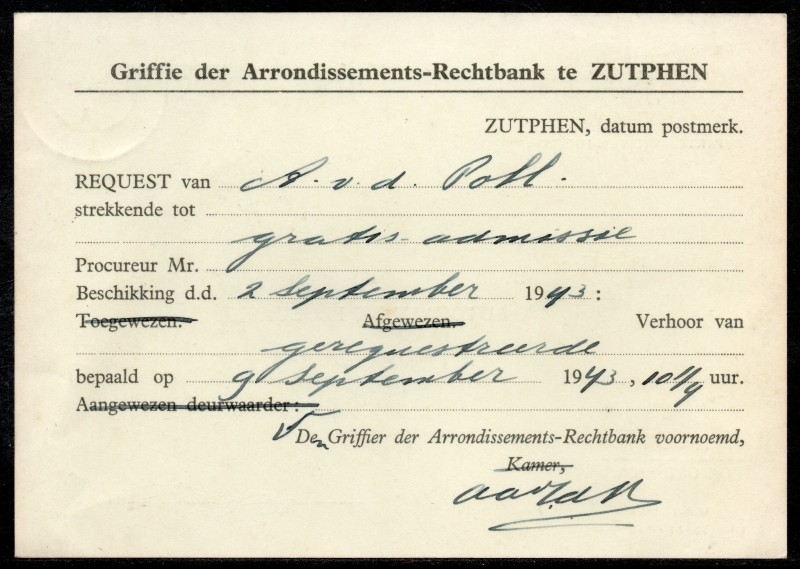 Griffie der Arrondissements-Rechtbank te ZUTPHEN
ZUTPHEN, datum postmerk.
REQUEST van A. v. d. Poll.
strekkende tot
gratis admissie
Procureur Mr.
Beschikking d.d. 2 September 1943:
Toegewezen. Afgewezen. Verhoor van
gerequestreerde
bepaald op 9 September 1943, 10 1/4 uur.
Aangewezen deurwaarder:
Den Griffier der Arrondissements-Rechtbank voornoemd,
Kamer,